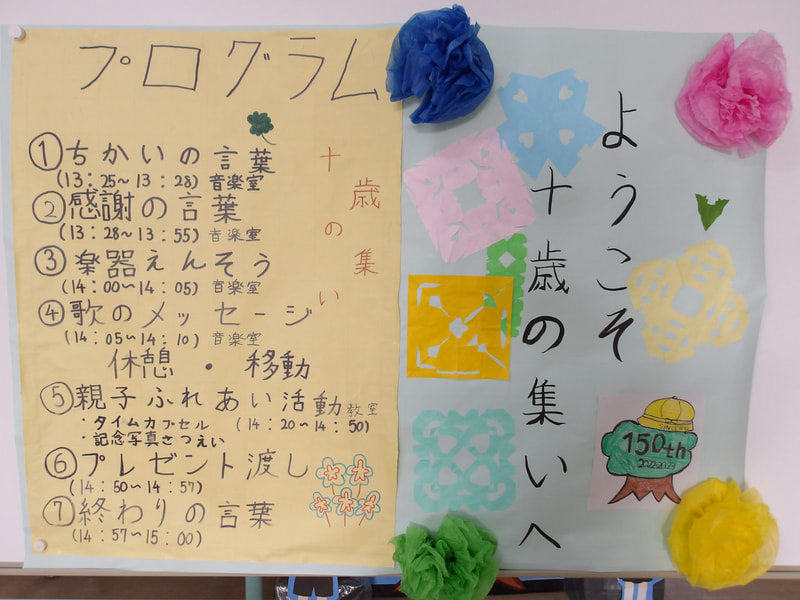 プログラム
十歳の集い
①ちかいの言葉
(13:25～13:28) 音楽室
②感謝の言葉
(13:28～13:55) 音楽室
③楽器えんそう
(14:00～14:05) 音楽室
④歌のメッセージ
(14:05～14:10) 音楽室
休憩・移動
⑤親子ふれあい活動 教室
・タイムカプセル (14:20～14:50)
・記念写真さつえい
⑥プレゼント渡し
(14:50～14:57)
⑦終わりの言葉
(14:57～15:00)
ようこそ
十歳の集いへ
150th
2022-2023